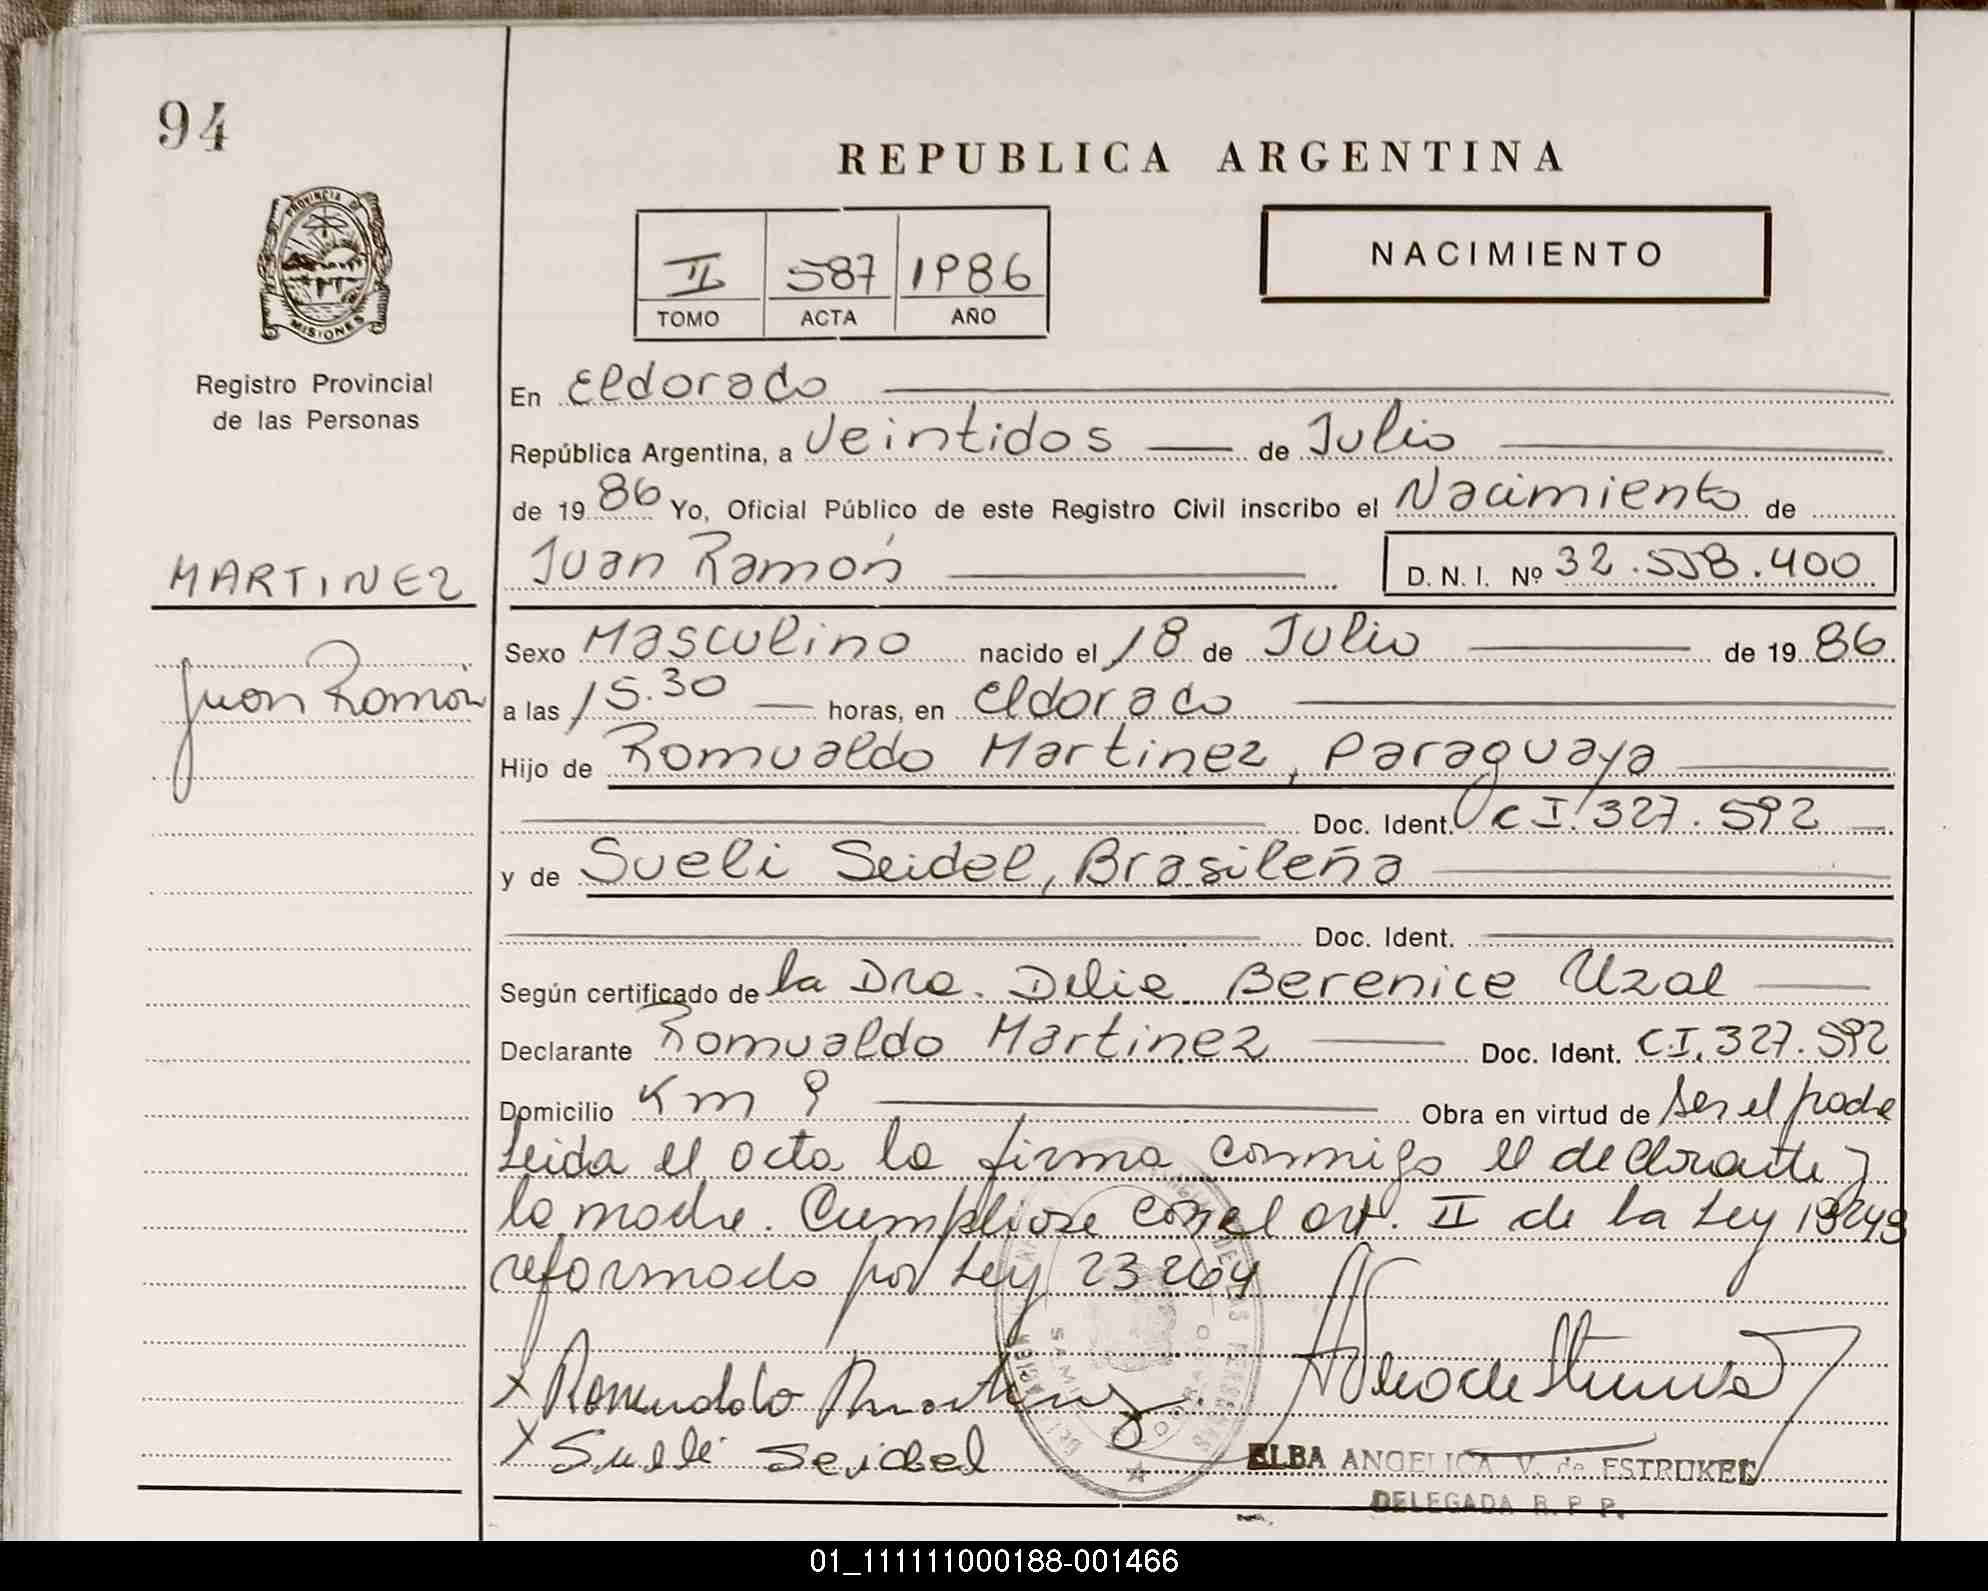 94
REPUBLICA ARGENTINA
PROVINCIA DE
MISIONES
II 587 1986
TOMO ACTA AÑO
NACIMIENTO
Registro Provincial
de las Personas
En Eldorado
República Argentina, a Veintidos de Julio
de 1986 Yo, Oficial Público de este Registro Civil inscribo el Nacimiento de
Juan Ramón D. N. I. Nº 32.558.400
MARTINEZ
Juan Ramón
Sexo Masculino nacido el 18 de Julio de 1986
a las 15.30 horas, en Eldorado
Hijo de Romualdo Martinez, Paraguaya
Doc. Ident. C I. 327.592
y de Sueli Seidel, Brasileña
Doc. Ident.
Según certificado de la Dra. Delia Berenice Uzal
Declarante Romualdo Martinez Doc. Ident. C.I. 327.592
Domicilio Km 9 Obra en virtud de ser el padre
Leida el acta la firma conmigo el declarante y
la madre. Cumpliose con el art. II de la Ley 18248
reformado por Ley 23264
x Romualdo Martinez
x Sueli Seidel
ELBA ANGELICA V. de ESTRUKEL
DELEGADA R. P. P.
01_111111000188-001466